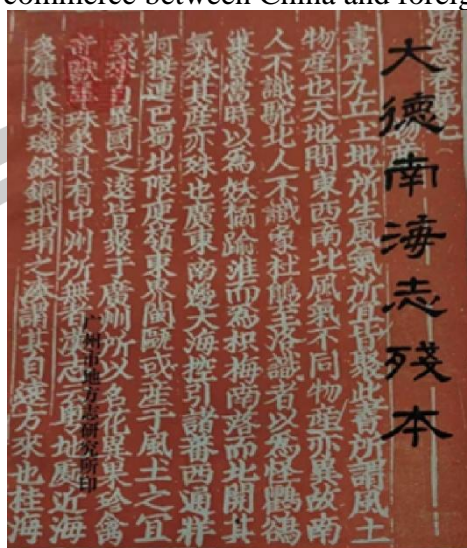 commerce between China and foreig
大德南海志残本
海志卷第七
物産
書序九丘土地所生風氣所宜皆聚此書所謂風土
物産也天地間東西南北風氣不同物産亦異故南
人不識駝北人不識象杜鵑至洛識者以為怪鸜鵒
巢魯當時以為妖橘踰淮而為枳梅南營而北開其
氣殊其産亦殊也廣東南邊大海控引諸蕃西通牂
牁接連巴蜀北限庾嶺東界閩甌或産于風土之宜
或來自異國之遠皆聚于廣州所以名花異果珍禽
奇獸犀珠象貝有中州所無者漢志云粵地處近海
多犀象珠璣銀銅玳瑁之湊謂其自遠方來也桂海
广州市地方志研究所印